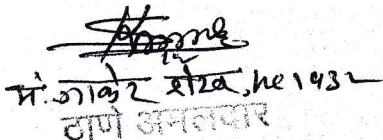 मं. जाकेर शेख, ne 1932
ठाणे अमलदार